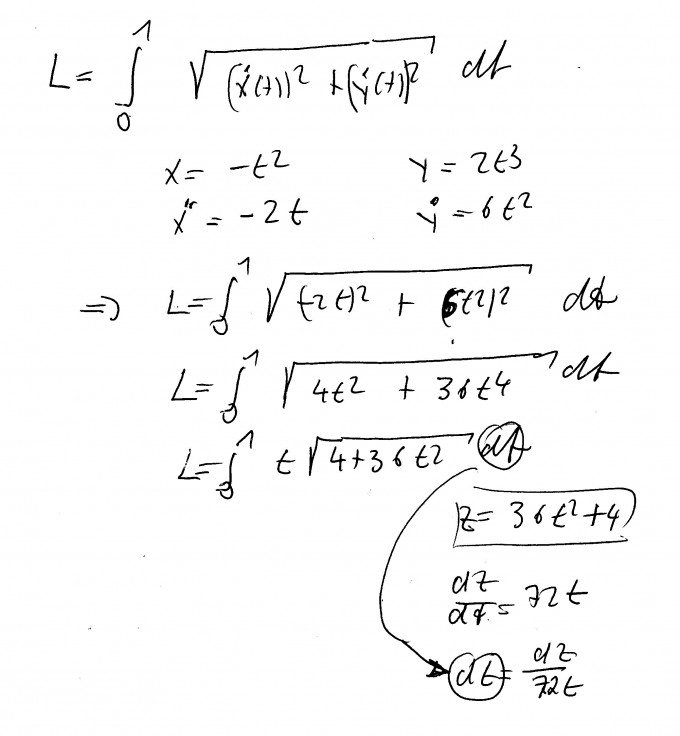 L = ∫₀¹ √((ẋ(t))² + (ẏ(t))²) dt
x = -t² y = 2t³
ẋ = -2t ẏ = 6t²
=> L = ∫₀¹ √((-2t)² + (6t²)²) dt
L = ∫₀¹ √(4t² + 36t⁴) dt
L = ∫₀¹ t√(4+36t²) dt
z = 36t²+4
dz/dt = 72t
dt = dz/72t